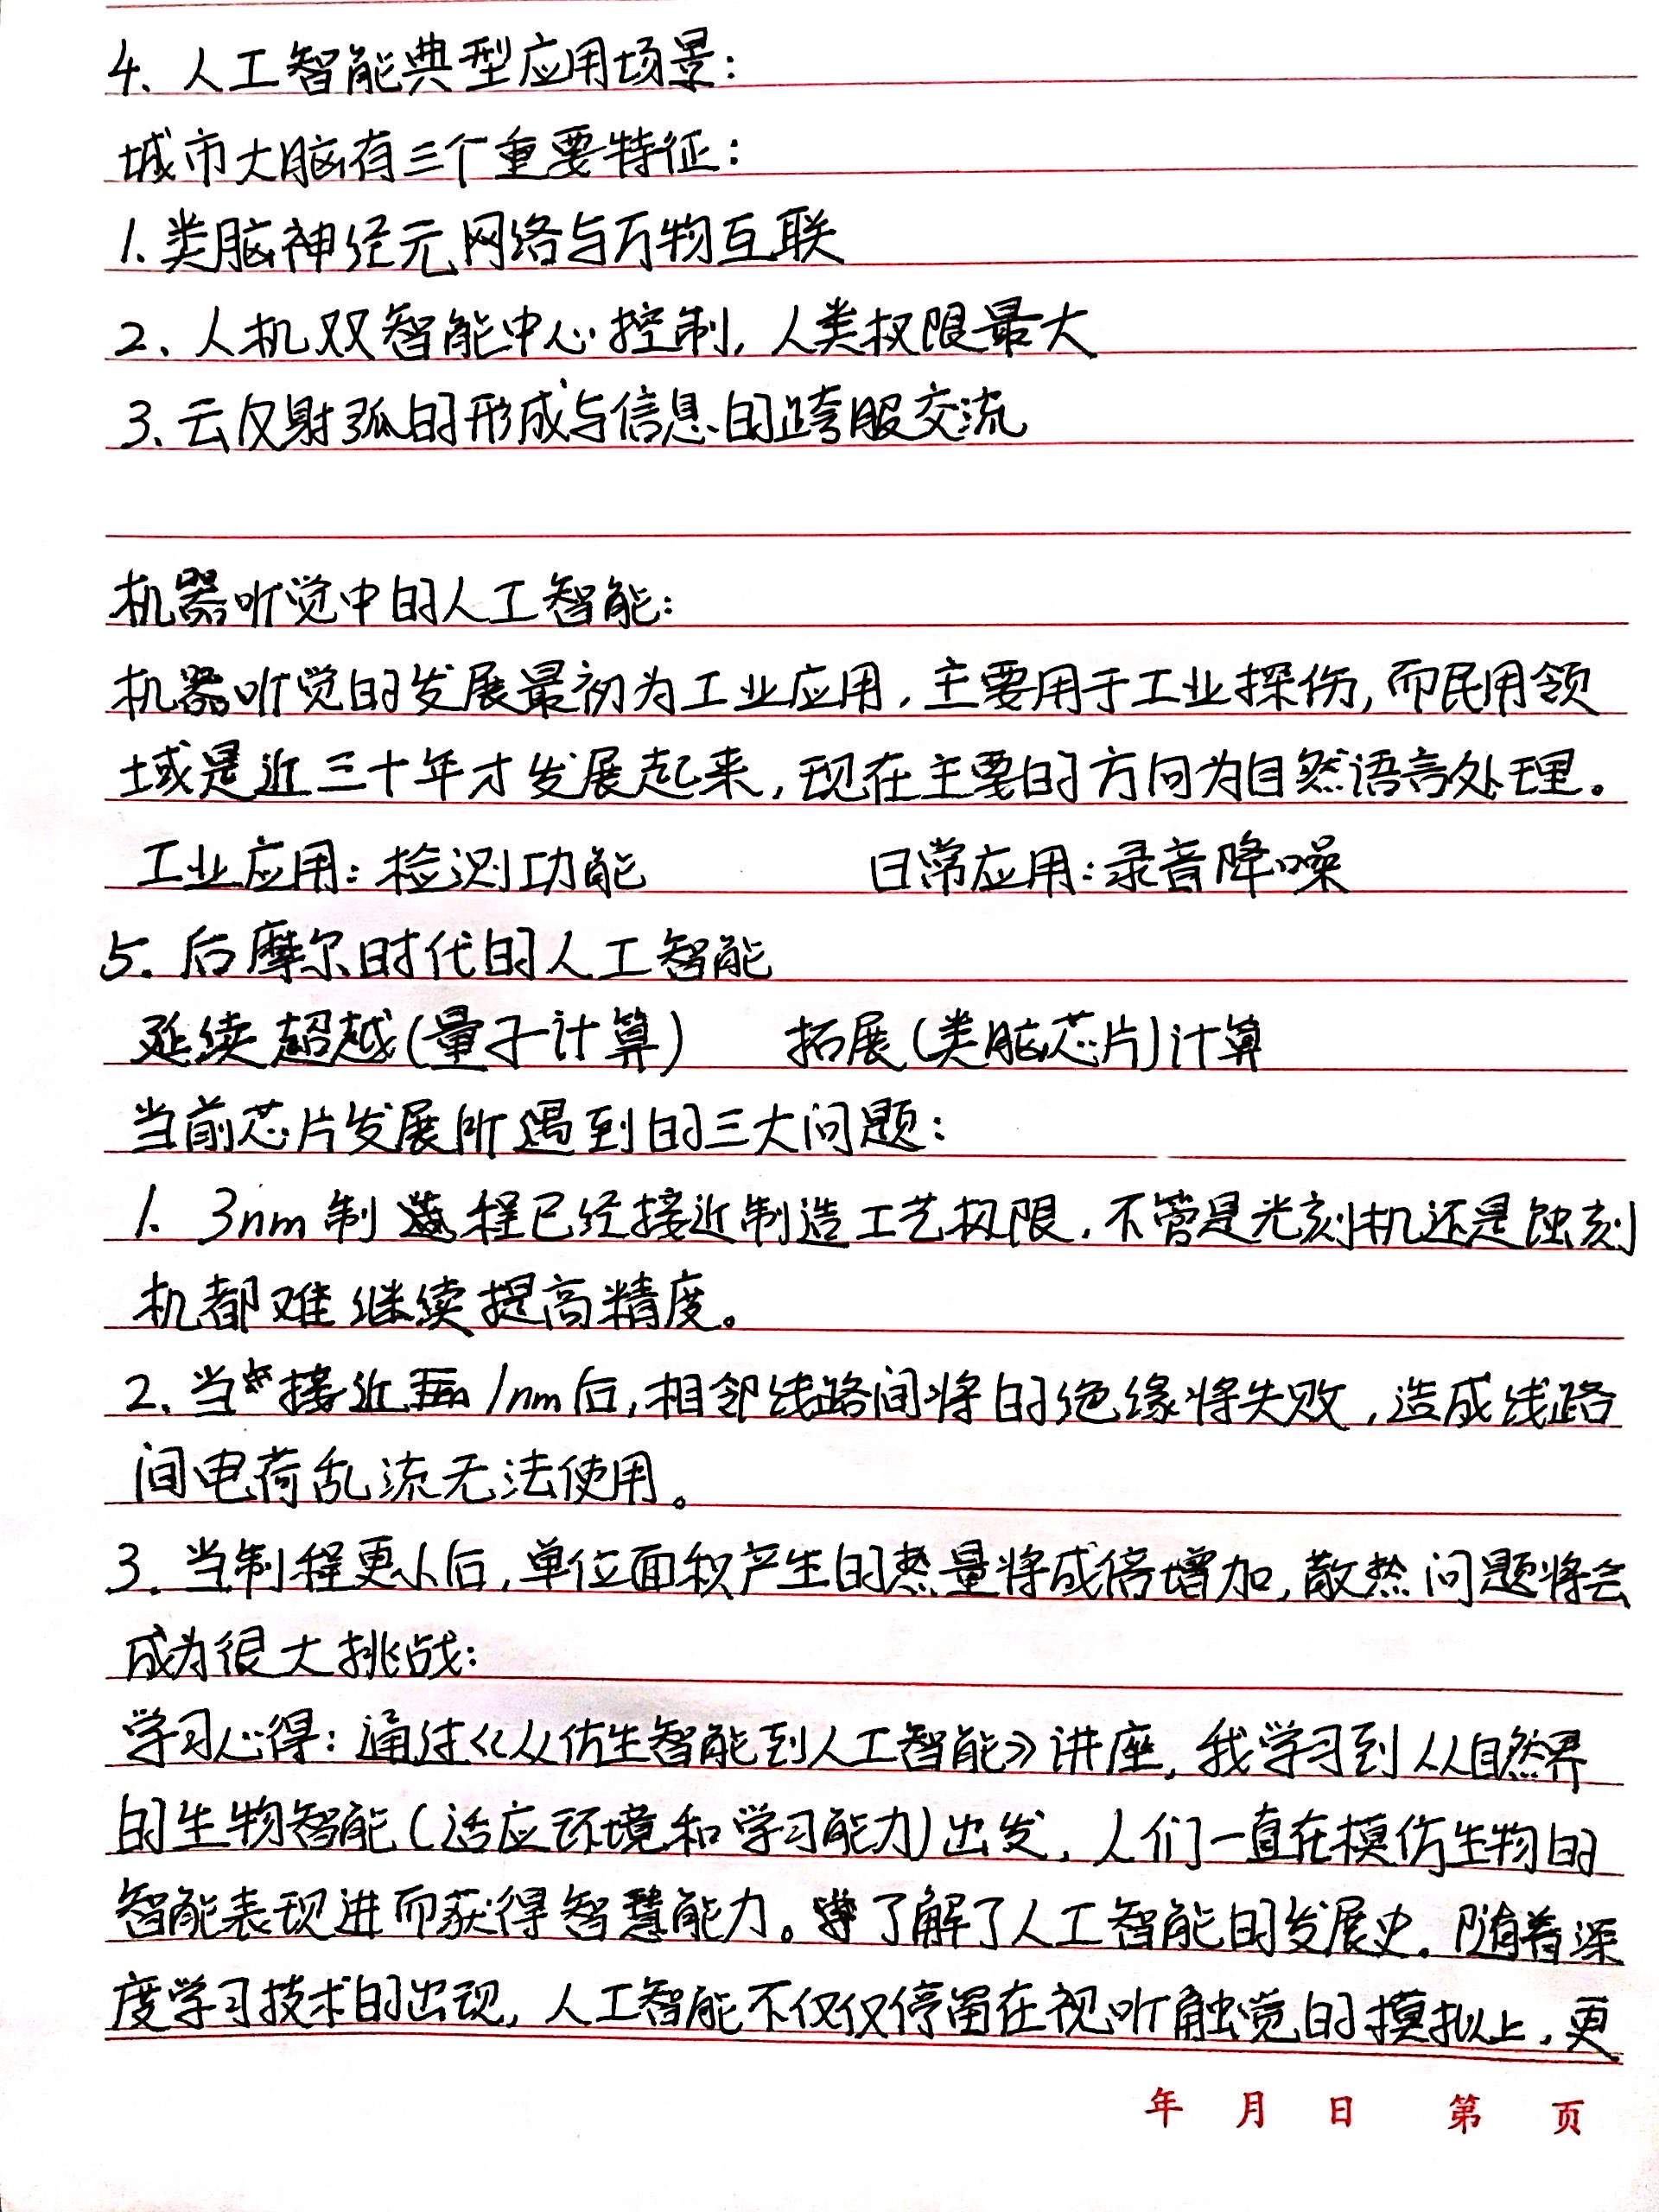 4、人工智能典型应用场景：
城市大脑有三个重要特征：
1、类脑神经元网络与万物互联
2、人机双智能中心控制，人类权限最大
3、云反射弧的形成与信息的跨服交流
机器听觉中的人工智能：
机器听觉的发展最初为工业应用，主要用于工业探伤，而民用领
域是近三十年才发展起来，现在主要的方向为自然语言处理。
工业应用：检测功能 日常应用：录音降噪
5. 后摩尔时代的人工智能
延续超越（量子计算） 拓展（类脑芯片）计算
当前芯片发展所遇到的三大问题：
1、3nm制程已经接近制造工艺极限，不管是光刻机还是蚀刻
机都难继续提高精度。
2、当接近1nm后，相邻线路间将的绝缘将失败，造成线路
间电荷乱流无法使用。
3. 当制程更小后，单位面积产生的热量将成倍增加，散热问题将会
成为很大挑战：
学习心得：通过《从仿生智能到人工智能》讲座，我学习到从自然界
的生物智能（适应环境和学习能力）出发，人们一直在模仿生物的
智能表现进而获得智慧能力。了解了人工智能的发展史。随着深
度学习技术的出现，人工智能不仅仅停留在视听触觉的模拟上，更
年 月 日 第 页